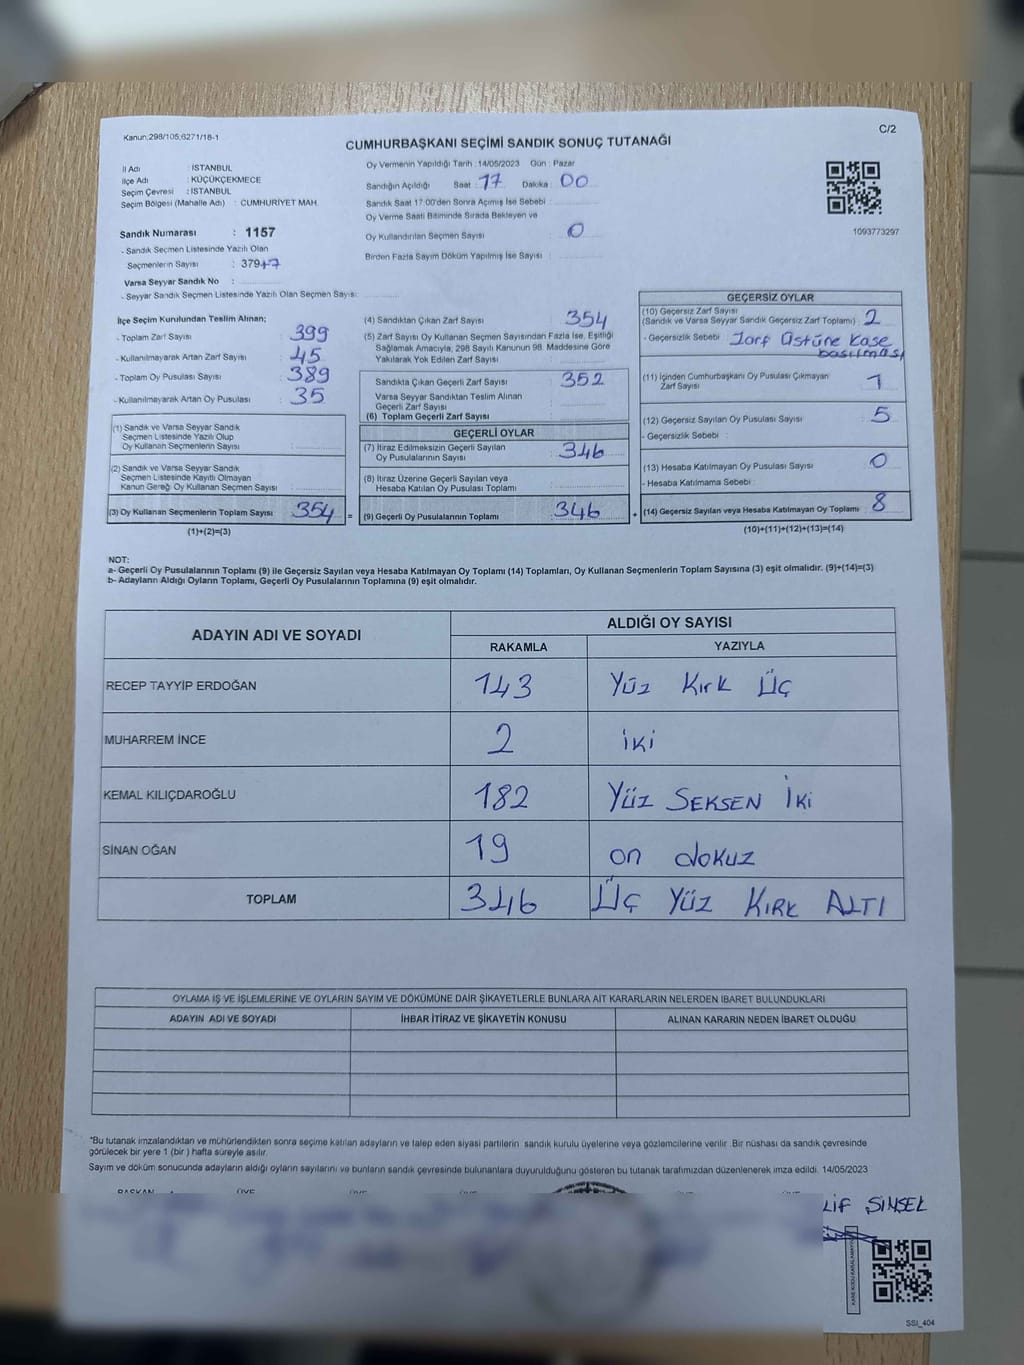 Kanun:298/105;6271/18-1
C/2
CUMHURBAŞKANI SEÇİMİ SANDIK SONUÇ TUTANAĞI
İl Adı : İSTANBUL
İlçe Adı : KÜÇÜKÇEKMECE
Seçim Çevresi : İSTANBUL
Seçim Bölgesi (Mahalle Adı) : CUMHURİYET MAH.
Oy Vermenin Yapıldığı Tarih :14/05/2023 Gün : Pazar
Sandığın Açıldığı Saat : 17 Dakika : 00
Sandık Saat 17:00'den Sonra Açılmış İse Sebebi :
Oy Verme Saati Bitiminde Sırada Bekleyen ve
Oy Kullandırılan Seçmen Sayısı : 0
Birden Fazla Sayım Döküm Yapılmış İse Sayısı :
1093773297
Sandık Numarası : 1157
- Sandık Seçmen Listesinde Yazılı Olan
Seçmenlerin Sayısı : 379+7
Varsa Seyyar Sandık No :
- Seyyar Sandık Seçmen Listesinde Yazılı Olan Seçmen Sayısı:
İlçe Seçim Kurulundan Teslim Alınan;
- Toplam Zarf Sayısı : 399
- Kullanılmayarak Artan Zarf Sayısı : 45
- Toplam Oy Pusulası Sayısı : 389
- Kullanılmayarak Artan Oy Pusulası : 35
(1) Sandık ve Varsa Seyyar Sandık
Seçmen Listesinde Yazılı Olup
Oy Kullanan Seçmenlerin Sayısı :
(2) Sandık ve Varsa Seyyar Sandık
Seçmen Listesinde Kayıtlı Olmayan
Kanun Gereği Oy Kullanan Seçmen Sayısı :
(3) Oy Kullanan Seçmenlerin Toplam Sayısı : 354 =
(1)+(2)=(3)
(4) Sandıktan Çıkan Zarf Sayısı : 354
(5) Zarf Sayısı Oy Kullanan Seçmen Sayısından Fazla İse, Eşitliği
Sağlamak Amacıyla, 298 Sayılı Kanunun 98. Maddesine Göre
Yakılarak Yok Edilen Zarf Sayısı :
Sandıkta Çıkan Geçerli Zarf Sayısı : 352
Varsa Seyyar Sandıktan Teslim Alınan
Geçerli Zarf Sayısı :
(6) Toplam Geçerli Zarf Sayısı
GEÇERLİ OYLAR
(7) İtiraz Edilmeksizin Geçerli Sayılan
Oy Pusulalarının Sayısı : 346
(8) İtiraz Üzerine Geçerli Sayılan veya
Hesaba Katılan Oy Pusulası Toplamı :
(9) Geçerli Oy Pusulalarının Toplamı : 346 +
GEÇERSİZ OYLAR
(10) Geçersiz Zarf Sayısı
(Sandık ve Varsa Seyyar Sandık Geçersiz Zarf Toplamı) : 2
- Geçersizlik Sebebi : Zarf üstüne Kaşe
basılması
(11) İçinden Cumhurbaşkanı Oy Pusulası Çıkmayan
Zarf Sayısı : 1
(12) Geçersiz Sayılan Oy Pusulası Sayısı : 5
- Geçersizlik Sebebi :
(13) Hesaba Katılmayan Oy Pusulası Sayısı : 0
- Hesaba Katılmama Sebebi :
(14) Geçersiz Sayılan veya Hesaba Katılmayan Oy Toplamı : 8
(10)+(11)+(12)+(13)=(14)
NOT:
a- Geçerli Oy Pusulalarının Toplamı (9) ile Geçersiz Sayılan veya Hesaba Katılmayan Oy Toplamı (14) Toplamları, Oy Kullanan Seçmenlerin Toplam Sayısına (3) eşit olmalıdır. (9)+(14)=(3)
b- Adayların Aldığı Oyların Toplamı, Geçerli Oy Pusulalarının Toplamına (9) eşit olmalıdır.
ADAYIN ADI VE SOYADI
ALDIĞI OY SAYISI
RAKAMLA YAZIYLA
RECEP TAYYİP ERDOĞAN 143 Yüz Kırk Üç
MUHARREM İNCE 2 iki
KEMAL KILIÇDAROĞLU 182 Yüz SEKSEN İki
SİNAN OĞAN 19 on dokuz
TOPLAM 346 Üç YÜZ KIRK ALTI
OYLAMA İŞ VE İŞLEMLERİNE VE OYLARIN SAYIM VE DÖKÜMÜNE DAİR ŞİKAYETLERLE BUNLARA AİT KARARLARIN NELERDEN İBARET BULUNDUKLARI
ADAYIN ADI VE SOYADI İHBAR İTİRAZ VE ŞİKAYETİN KONUSU ALINAN KARARIN NEDEN İBARET OLDUĞU
*Bu tutanak imzalandıktan ve mühürlendikten sonra seçime katılan adayların ve talep eden siyasi partilerin sandık kurulu üyelerine veya gözlemcilerine verilir. Bir nüshası da sandık çevresinde
görülecek bir yere 1 (bir ) hafta süreyle asılır.
Sayım ve döküm sonucunda adayların aldığı oyların sayılarını ve bunların sandık çevresinde bulunanlara duyurulduğunu gösteren bu tutanak tarafımızdan düzenlenerek imza edildi. 14/05/2023
BAŞKAN ÜYE
LİF SİNSEL
SSI_404